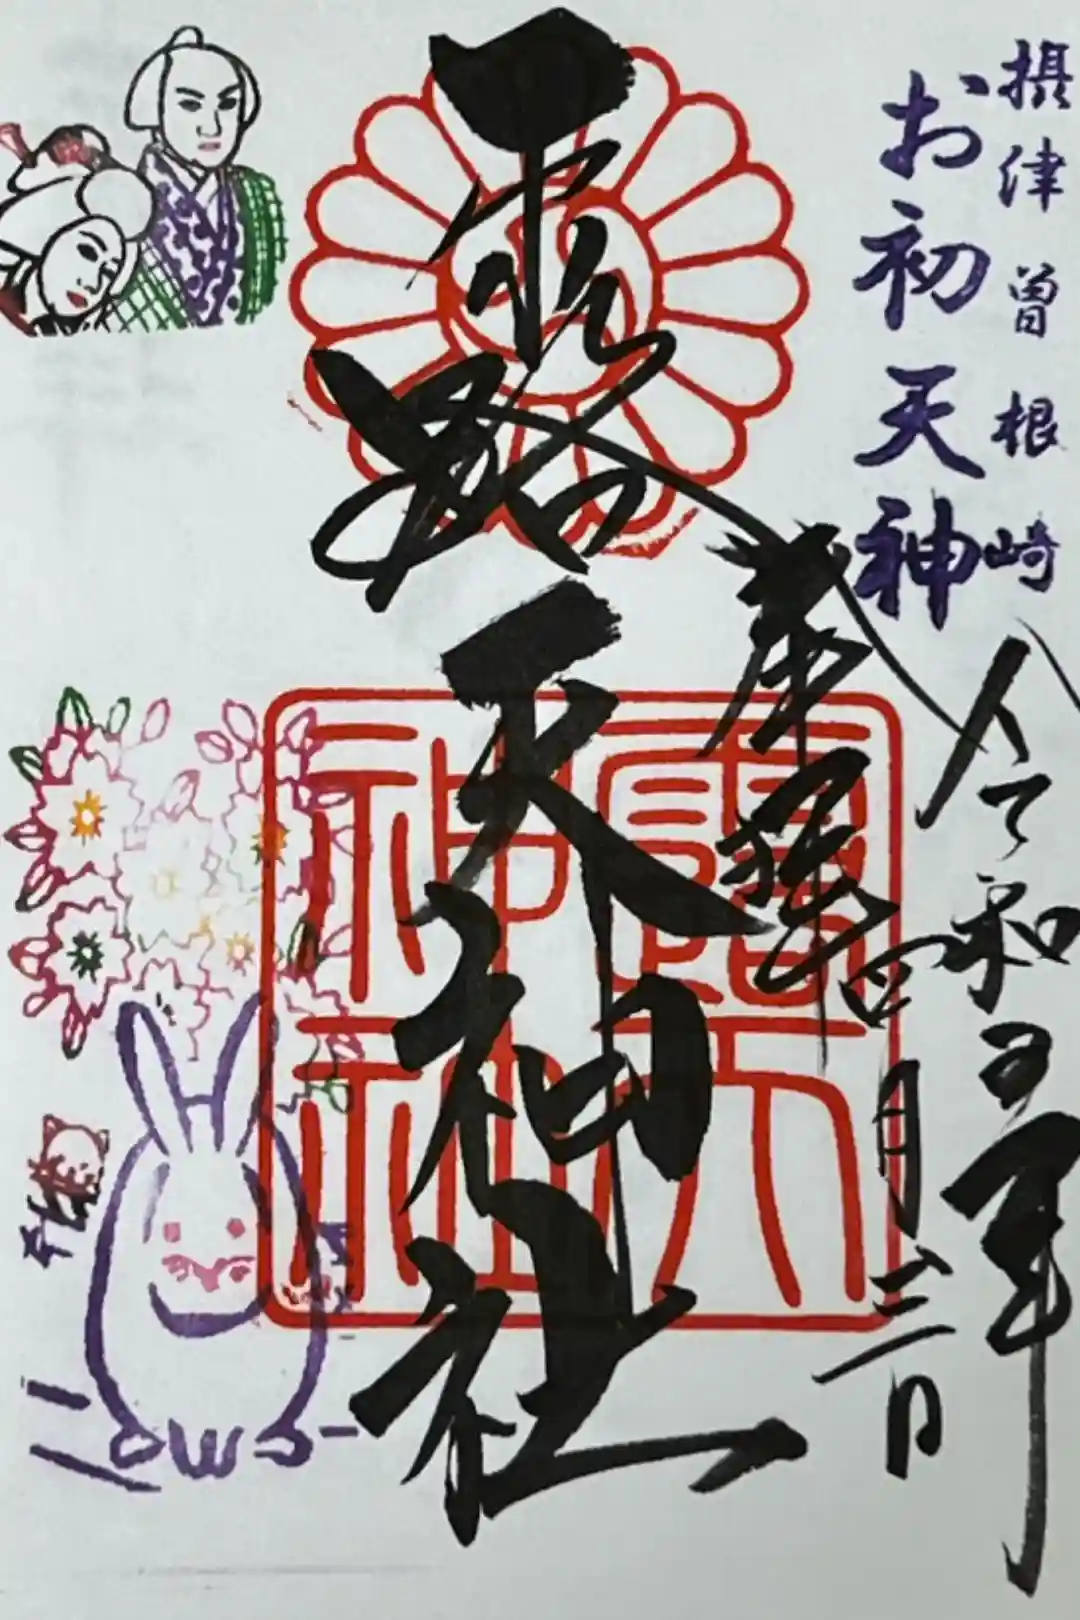 摂津曽根崎
お初天神
令和五年
四月三日
奉拝
露天神社
露天
神社